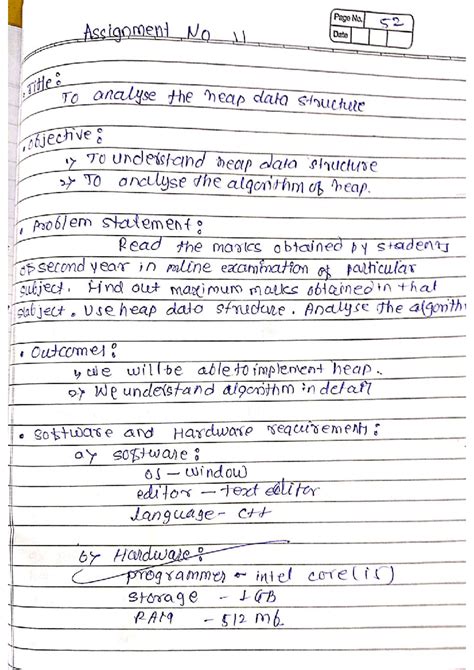 Page No. 52
Date
Assignment No 11
• Title :
To analyse the heap data structure
• objective :
1) To understand heap data structure
2) To analyse the algorithm of heap.
• Problem statement :
Read the marks obtained by students
of second year in online examination of particular
subject. Find out maximum marks obtained in that
subject. Use heap data structure. Analyse the algorithm
• Outcomes :
1) We will be able to implement heap.
2) We understand algorithm in detail
• Software and Hardware requirements :
a) software :
OS - window
editor - text editor
language - C++
b) Hardware :
programmer - intel core (i5)
storage - 1GB
RAM - 512 Mb.